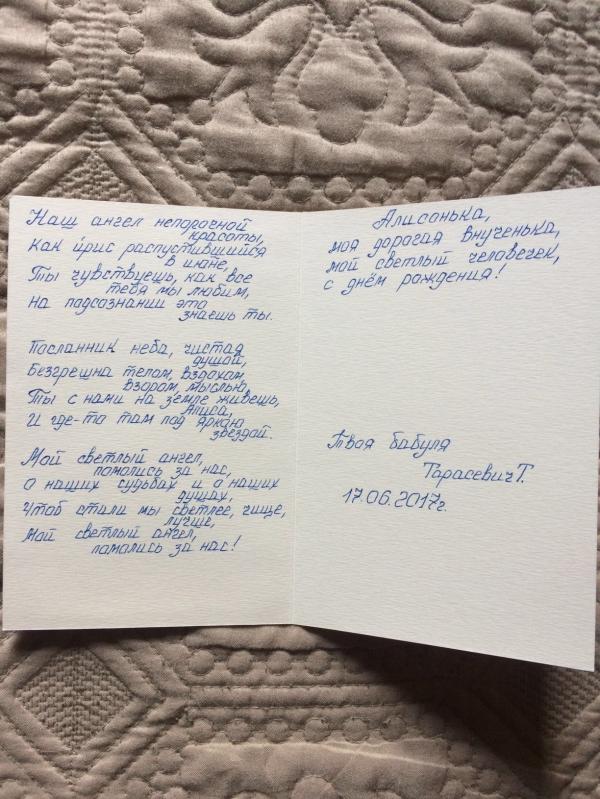 Наш ангел непорочной
красоты,
Как ирис распустившийся
в июне,
Ты чувствуешь, как все
тебя мы любим,
На подсознании это
знаешь ты.
Посланник неба, чистая
душой,
Безгрешна телом, вздохом,
взором, мыслью,
Ты с нами на земле живёшь,
Алиса,
И где-то там под яркою
звездой.
Мой светлый ангел,
помолись за нас,
О наших судьбах и о наших
душах,
Чтоб стали мы светлее, чище,
лучше,
Мой светлый ангел,
помолись за нас!
Алисонька,
моя дорогая внученька,
мой светлый человечек,
с днём рождения!
Твоя бабуля
Тарасевич Т.
17.06.2017г.